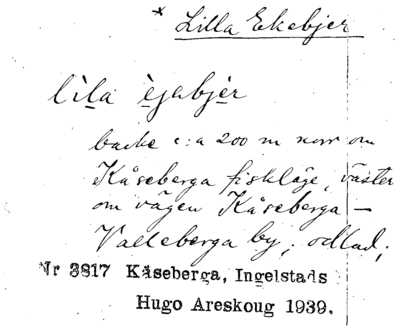 * Lilla Ekebjer
lìla ègabjèr
backe c:a 200 m norr om
Kåseberga fiskläge, väster
om vägen Kåseberga –
Valleberga by; odlad;
Nr 3817 Kåseberga, Ingelstads
Hugo Areskoug 1939.